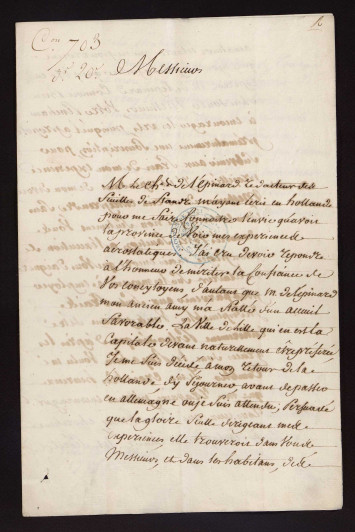 Con 703
Messieurs
M. le Chr. de L'Epinard Redacteur des
feuille de flandre m'ayant écrit en hollande
pour me faire connoitre l'envie qu'avoit
la province de voir mes experiences
aerostatiques J'ai cru devoir repondre
à l'honneur de meriter la Confiance de
Vos concytoyens d'autant que M. de L'epinard
mon ancien amy m'a flatté d'un acceuil
favorable. La Ville de Lille qui en est la
Capitale devant naturellement être préférée
Je me suis décidé à mon retour de la
hollande d'y séjourner avant de passer
en allemagne ou je suis attendu, Persuadé
que la gloire seule dirigeant mes
experiences elle trouveroit dans vous
Messieurs, et dans les habitans, des